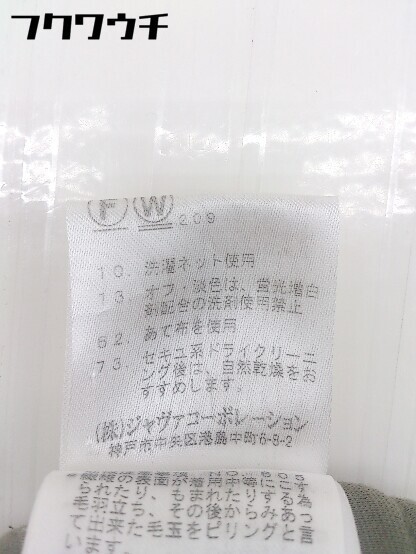 フクワウチ
F W 209
10. 洗濯ネット使用
13. オフ・淡色は、蛍光増白
剤配合の洗剤使用禁止
62. あて布を使用
73. セキユ系ドライクリーニ
ング後は、自然乾燥をお
すすめします。
(株)ジャヴァコーポレーション
神戸市中央区港島中町6-8-2
られたり、もまれたりするあと
毛羽立ち、その後からみ
出来た毛玉をピリング
ています。